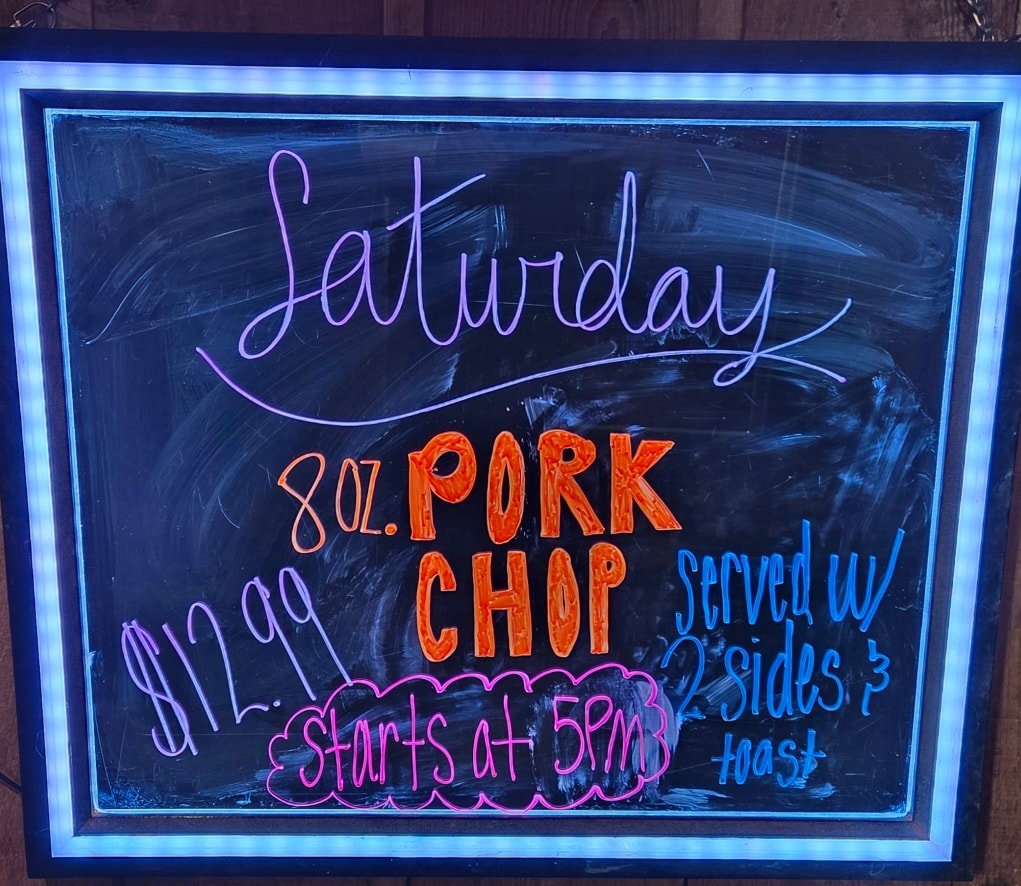 Saturday
8oz. PORK
CHOP
$12.99
served w/
2 sides &
toast
starts at 5pm